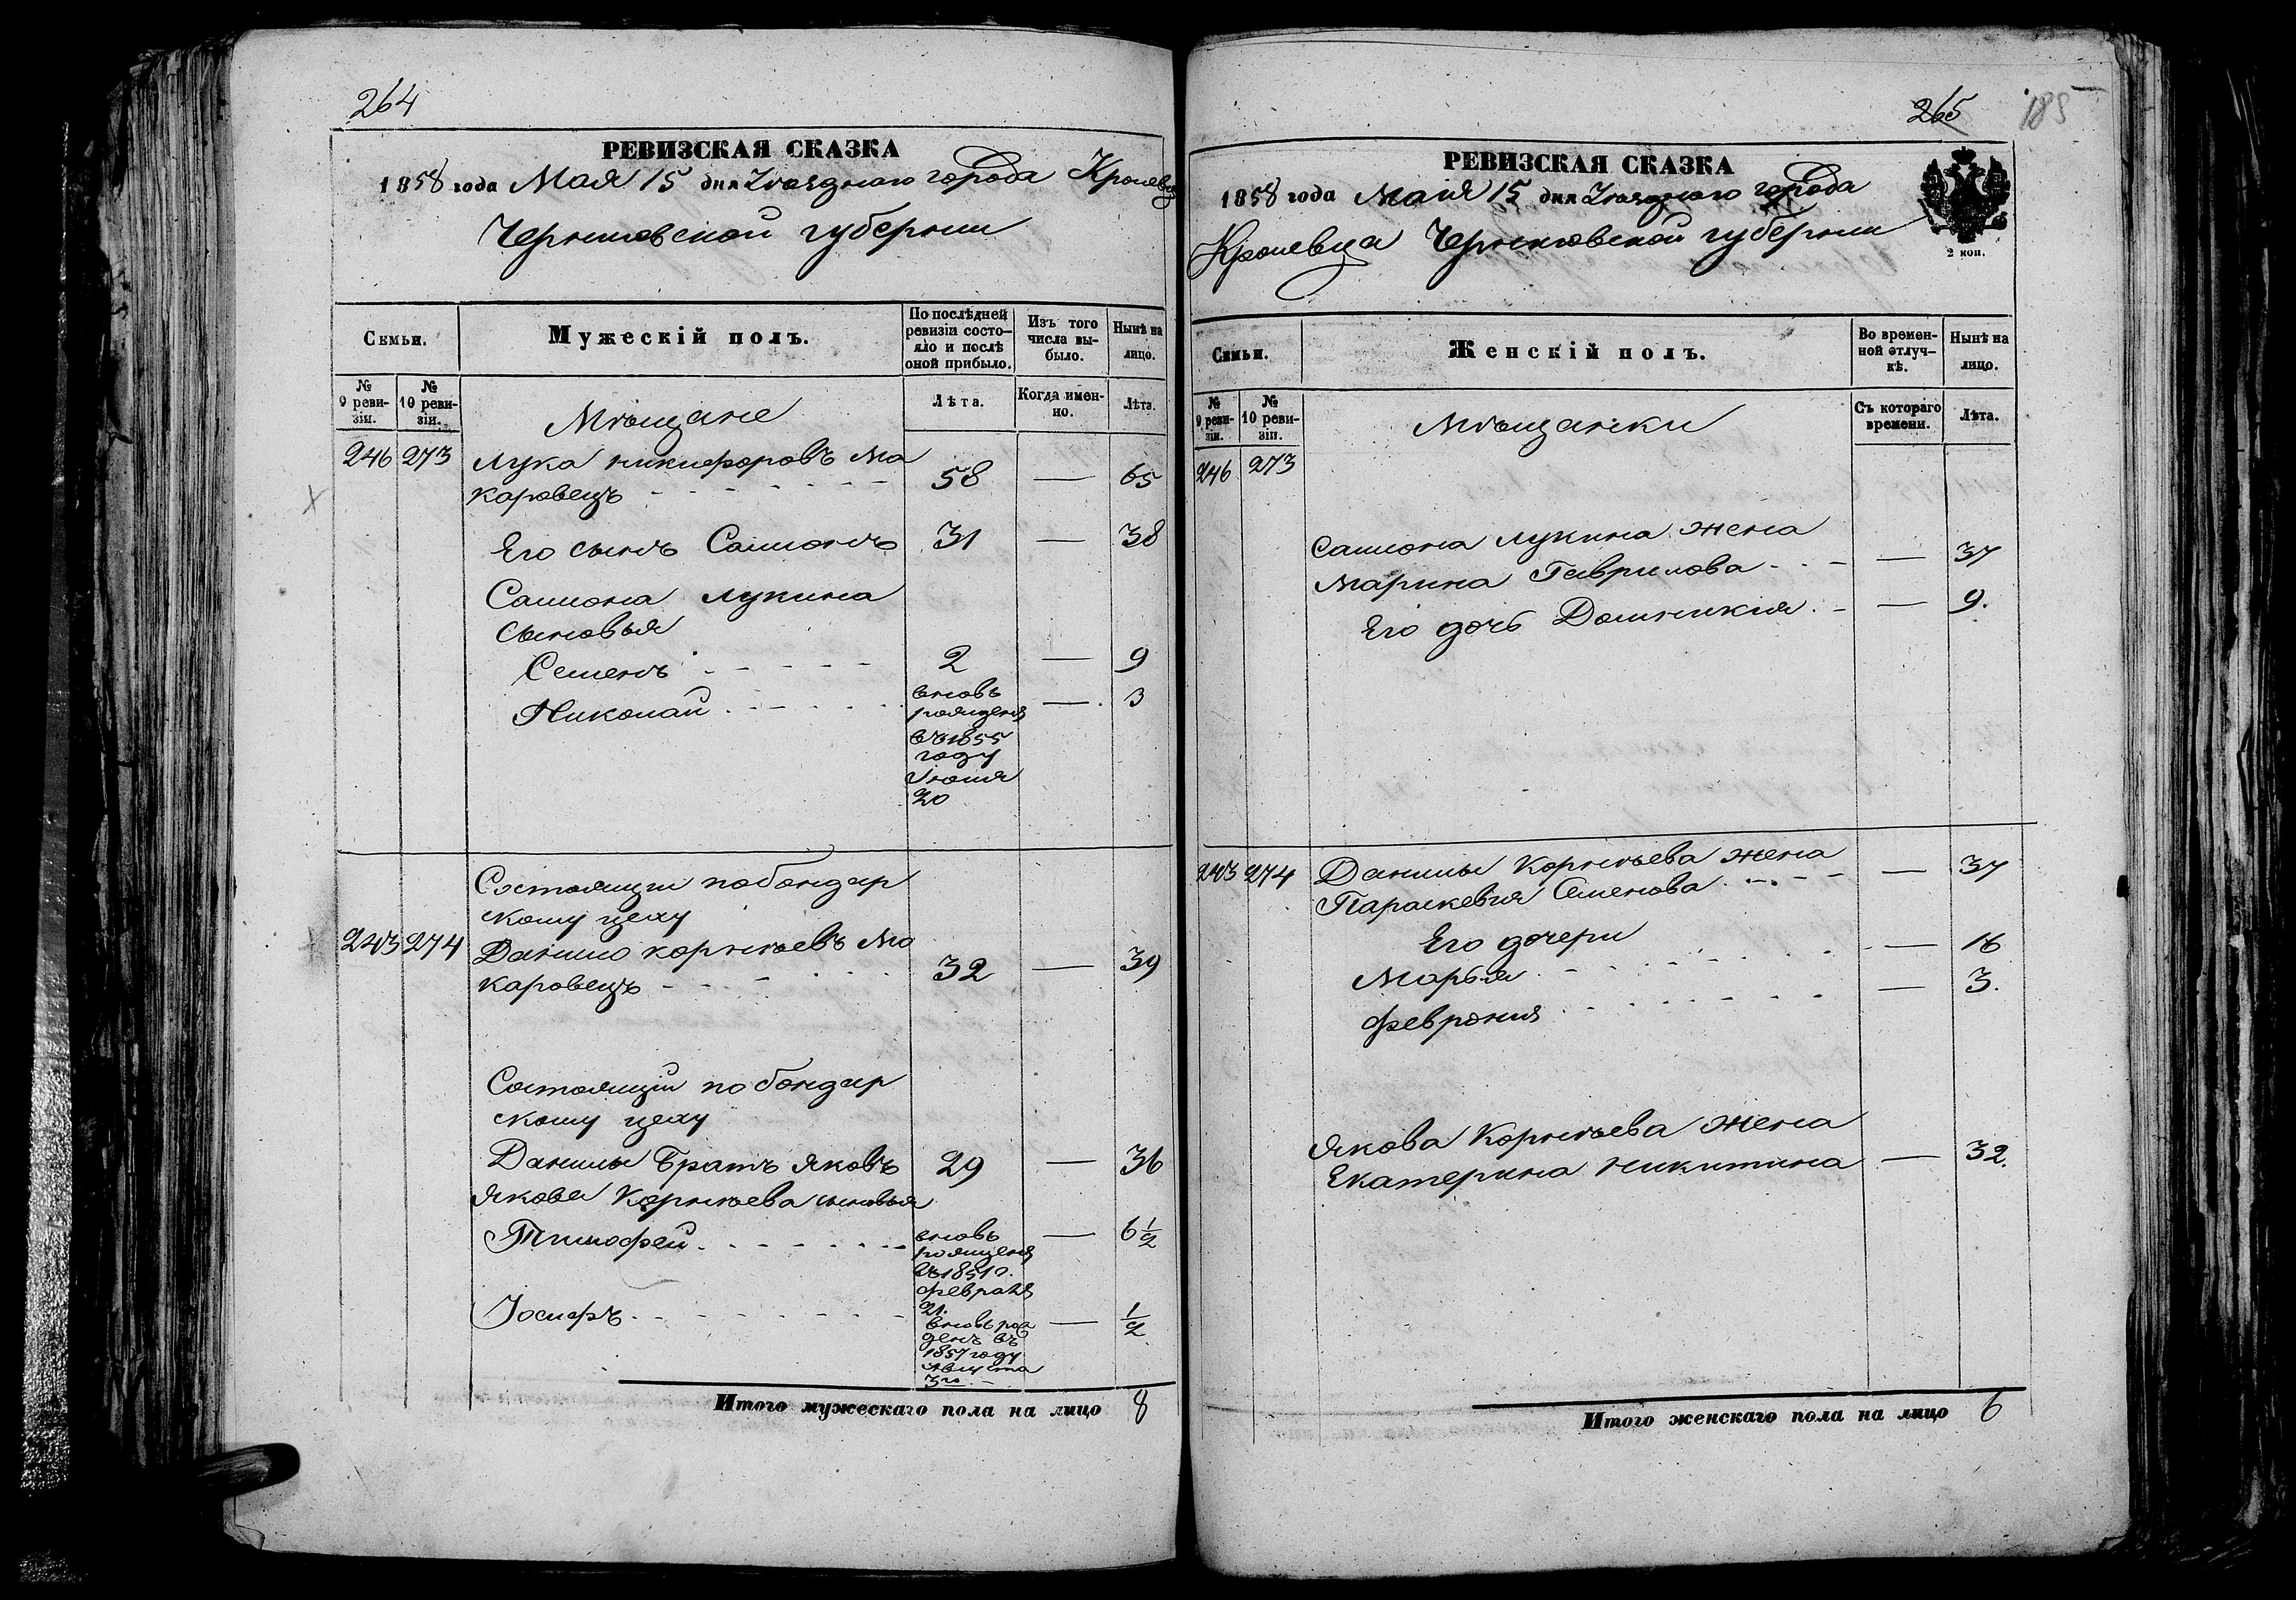 264
РЕВИЗСКАЯ СКАЗКА
1858 года Мая 15 дня Уезднаго города Кролевца
Черниговской губернии
Семьи.
Мужескій полъ.
По послѣдней ревизіи состояло и послѣ оной прибыло.
Изъ того числа выбыло.
Нынѣ на лицо.
№ 9 ревизіи.
№ 10 ревизіи.
Лѣта.
Когда именно.
Лѣта.
Мѣщане
246 273 Лука Никифоровъ Ма
каровецъ 58 — 65
Его сынъ Самсонъ 31 — 38
Самсона Лукина
сыновья
Семенъ 2 — 9
Николай — 3
вновь
рожденъ
въ 1855
году
Іюня
20
Состоящіи по бондар
скому цеху
243 274 Данило Корнѣевъ Ма
каровецъ 32 — 39
Состоящіи по бондар
скому цеху
Данилы братъ Яковъ 29 — 36
Якова Корнѣева сыновья
Тимофей — 6 1/2
вновь
рожденъ
въ 1851 г.
февраля
21.
Іосифъ — 1/2
вновь рож
денъ въ
1857 году
Августа
3го
Итого мужескаго пола на лицо 8
265
185
РЕВИЗСКАЯ СКАЗКА
1858 года Маія 15 дня Уезднаго города
Кролевца Черниговской губернии
2 коп.
Семьи.
Женскій полъ.
Во временной отлучкѣ.
Нынѣ на лицо.
№ 9 ревизіи.
№ 10 ревизіи.
Съ котораго времени.
Лѣта.
Мѣщанки
246 273
Самсона Лукина жена
Марина Гаврилова — 37
Его дочь Домникия — 9.
243 274 Данилы Корнѣева жена
Параскевия Семенова — 37
Его дочери
Марья — 16
Феврония — 3.
Якова Корнѣева жена
Екатерина Никитина — 32.
Итого женскаго пола на лицо 6